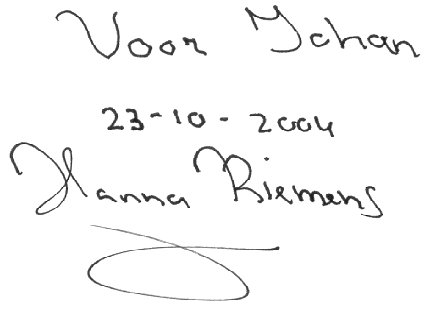 Voor Johan
23-10-2004
Hanna Riemens